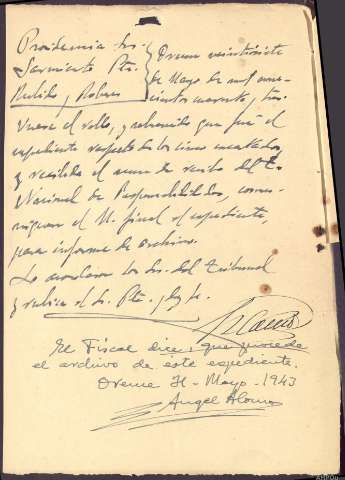 Providencia Srs.
Sarmiento Pte.
Pulido y
Orense veintisiete
de Mayo de mil nove-
cientos cuarenta y tres.
Vuese el rollo, y que fué el
expediente respecto de los cinco encartados,
y recibido el acuse de recibo del T.
Nacional de Responsabilidades,
el M. fiscal el expediente,
para informe de archivo.
Lo acordaron los Srs. del Tribunal
y rubrica el Sr. Pte. doy fe.
El Fiscal dice: que procede
el archivo de este expediente.
Orense 31 - Mayo - 1943
Angel Alonso